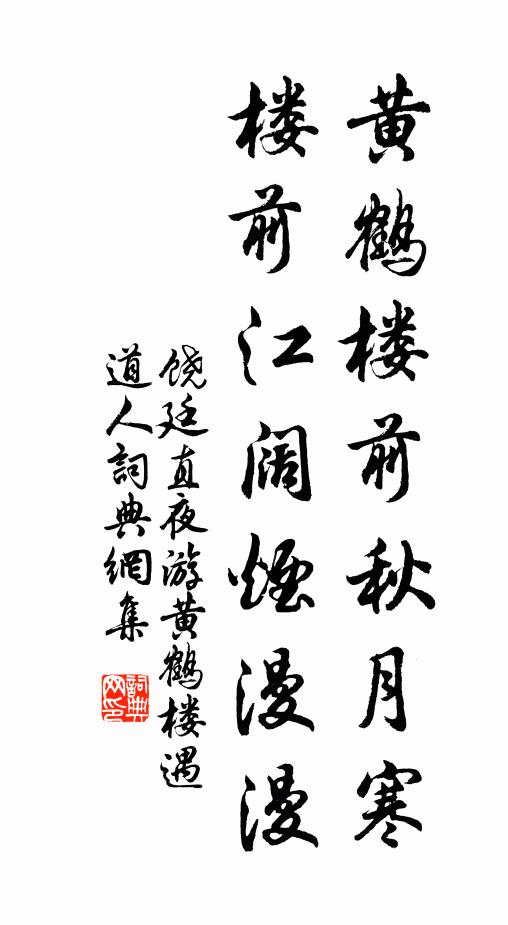 黄鹤楼前秋月寒
楼前江阔煙漫漫
饶廷直夜游黄鹤楼遇
道人詞典網集
詞典
网印